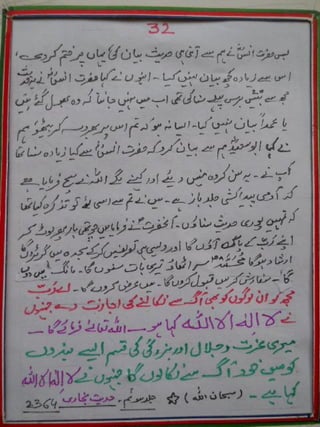 32
بس حضرت انسؓ نے ہم سے اتنی ہی حدیث بیان کی یہاں پر ختم کر دی،
اس سے زیادہ کچھ بیان نہیں کیا۔ انہوں نے کہا حضرت انسؓ نے یہ حدیث
مجھ سے بیس برس پہلے بیان کی تھی اب میں نہیں جانتا کہ وہ بھول گئے ہیں
یا عمداً بیان نہیں کیا۔ ایسا نہ ہو کہ تم اس پر بھروسہ کر بیٹھو ہم
نے کہا ابو سعید ہم سے بیان کرو کہ حضرت انسؓ سے کیا زیادہ سنا تھا
آپ نے۔ یہ سن کر وہ ہنس دیئے اور کہنے لگے اللہ نے سچ فرمایا ہے
کہ آدمی پیدائشی جلد باز ہے۔ میں نے تم سے اسی لئے تو ذکر کیا تھا
کہ تمہیں پوری حدیث سناؤں۔ آنحضرتؐ نے فرمایا میں چوتھی بار پھر لوٹ کر
اپنے رب کے پاس آؤں گا اور ویسی ہی تعریفیں کر کے سجدہ میں گر پڑوں گا
ارشاد ہو گا محمدؐ سر اٹھاؤ تیری بات سنوں گا۔ مانگ میں دوں
گا۔ سفارش کر میں قبول کروں گا۔ میں عرض کروں گا۔ اے رب
مجھ کو ان لوگوں کو بھی آگ سے نکالنے کی اجازت دے جنہوں
نے لا الہ الا اللہ کہا ہو۔ اللہ تعالیٰ فرمائے گا۔
میری عزت و جلال اور بزرگی کی قسم ایسے بندوں
کو میں خود آگ سے نکالوں گا جنہوں نے لا الہ الا اللہ
کہا ہے۔ (سبحان اللہ) ☆ جلد سوئم۔ حدیث بخاری 2364